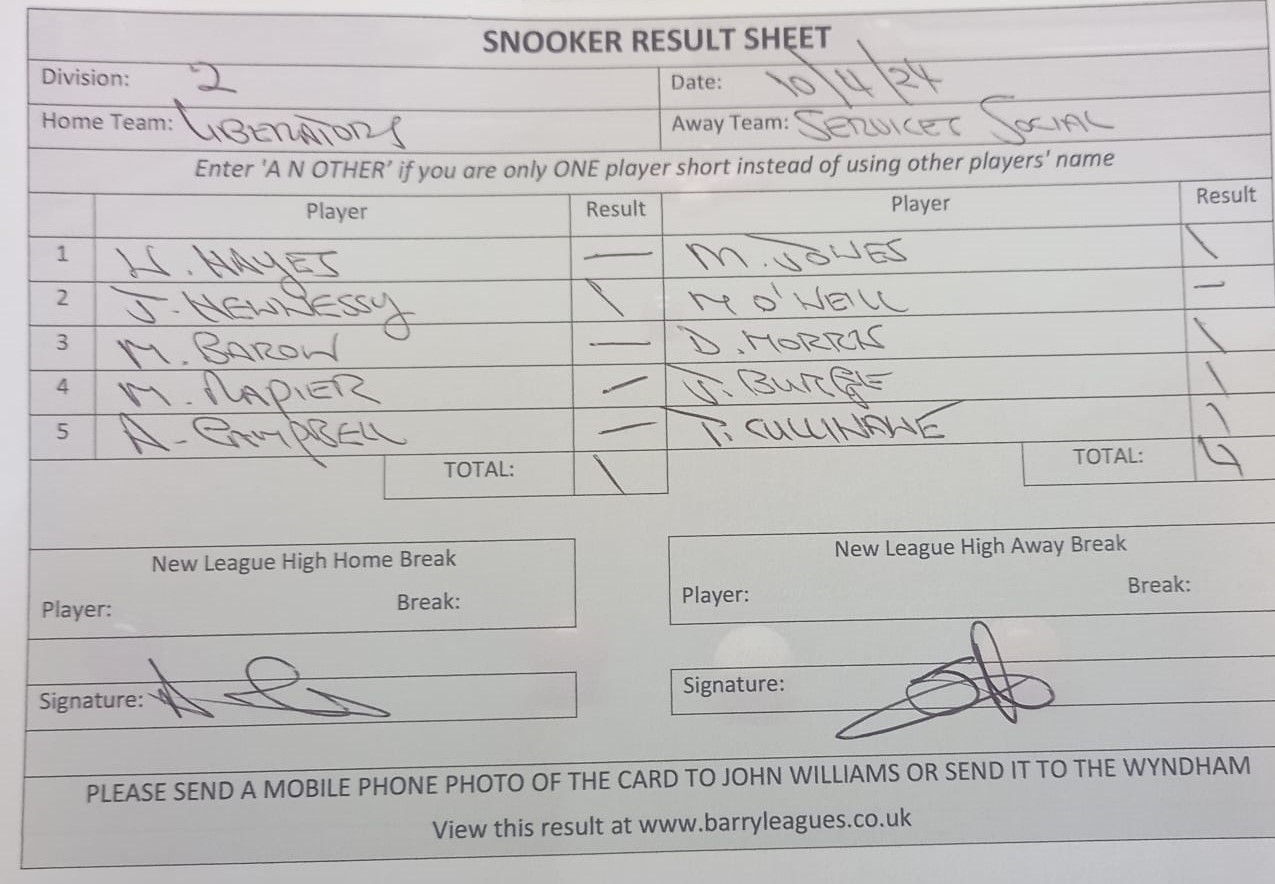 SNOOKER RESULT SHEET
Division: 2 Date: 10/4/24
Home Team: LIBERATORS Away Team: SERVICES SOCIAL
Enter 'A N OTHER' if you are only ONE player short instead of using other players' name
Player Result Player Result
1 W. HAYES — M. JONES \
2 J. HENNESSY \ M O'NEILL —
3 M. BARON — D. MORRIS \
4 M. NAPIER — J. BURGE \
5 A. CAMPBELL — P. CULLINANE \
TOTAL: \ TOTAL: 4
New League High Home Break New League High Away Break
Player: Break: Player: Break:
Signature: Signature:
PLEASE SEND A MOBILE PHONE PHOTO OF THE CARD TO JOHN WILLIAMS OR SEND IT TO THE WYNDHAM
View this result at www.barryleagues.co.uk